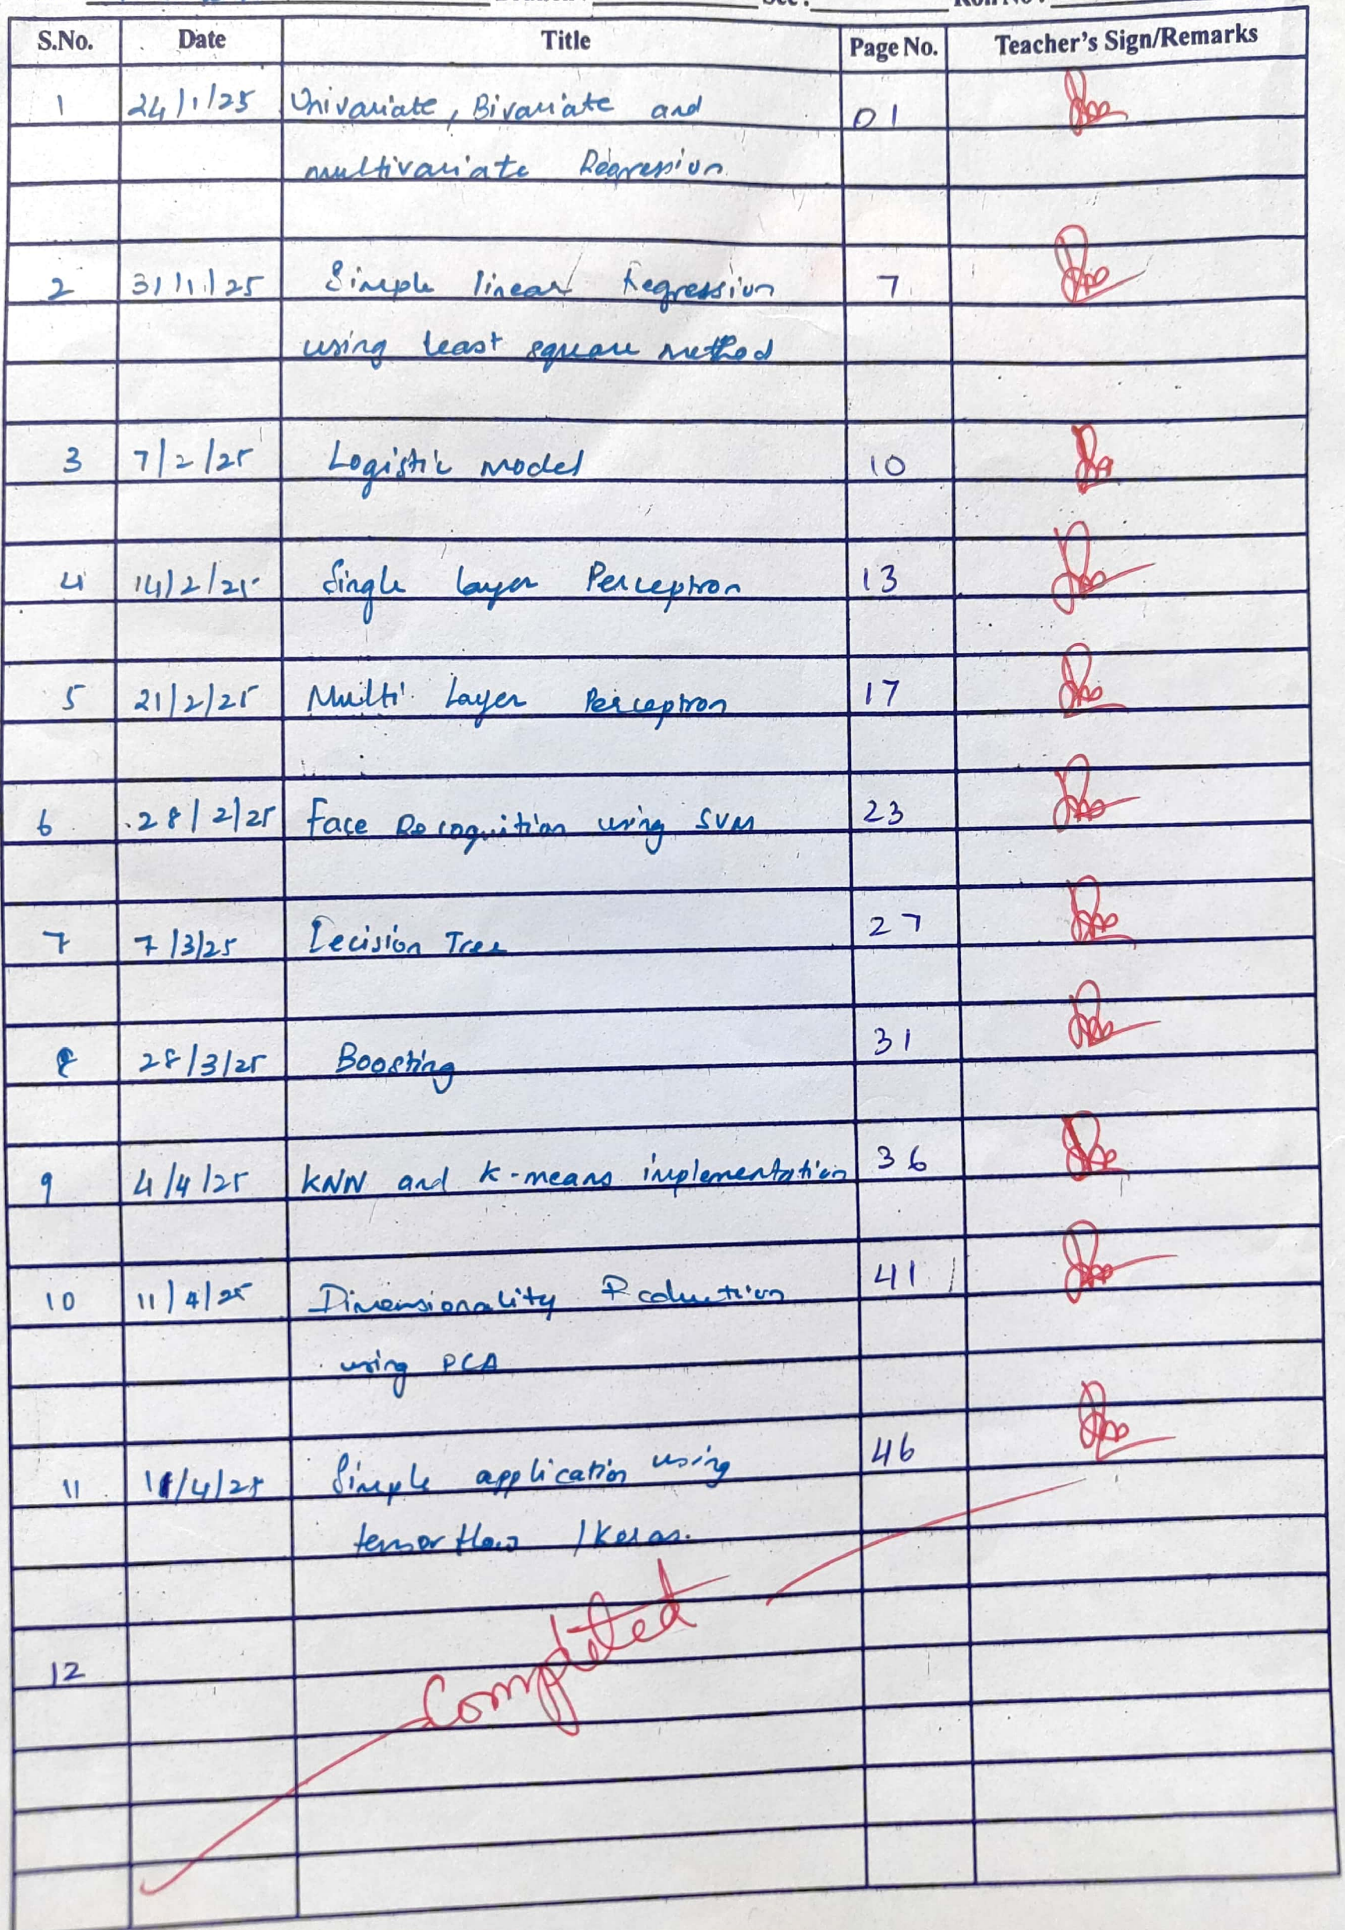 S.No. Date Title Page No. Teacher's Sign/Remarks
1 24/1/25 Univariate, Bivariate and 01
multivariate Regression
2 31/1/25 Simple linear Regression 7
using least square method
3 7/2/25 Logistic model 10
4 14/2/25 Single layer Perceptron 13
5 21/2/25 Multi Layer Perceptron 17
6 28/2/25 Face Recognition using SVM 23
7 7/3/25 Decision Tree 27
8 28/3/25 Boosting 31
9 4/4/25 KNN and K-means implementation 36
10 11/4/25 Dimensionality Reduction 41
using PCA
11 11/4/25 Simple application using 46
tensorflow /Keras.
Completed
12